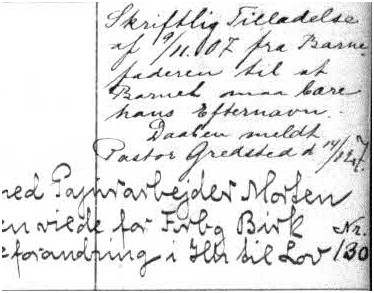 Skriftlig Tilladelse
af 9/11.07 fra Barne
faderen til at
Barnet maa bære
hans Efternavn.
Daaben meldt
Pastor Gredsted d 14/12.07.
med Papirarbejder Morten
en vilde for Forbg Birk
eforandring i Hht til Lov Nr. 130